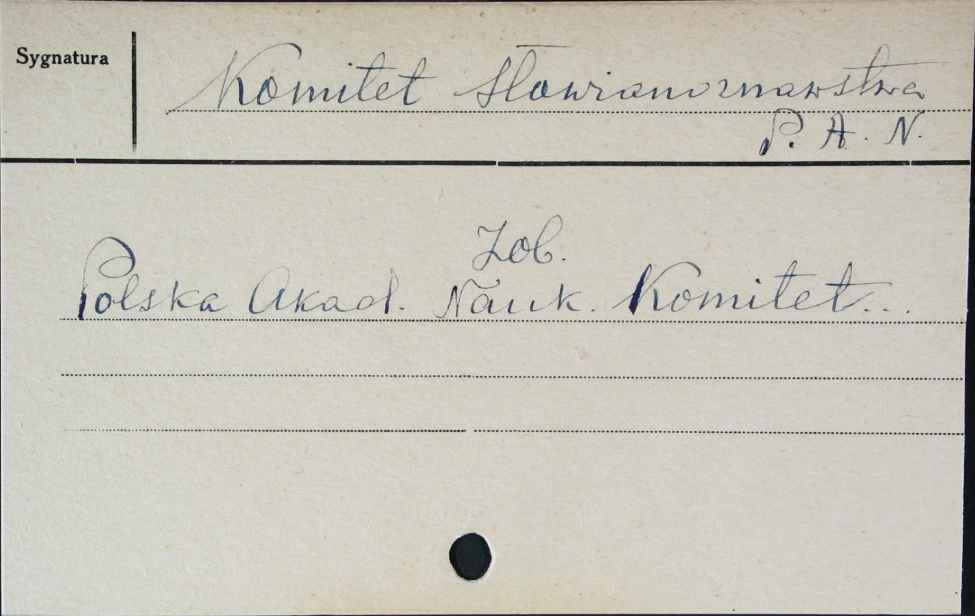 Sygnatura
Komitet Słowianoznawstwa
P. A. N.
Zob.
Polska Akad. Nauk. Komitet...